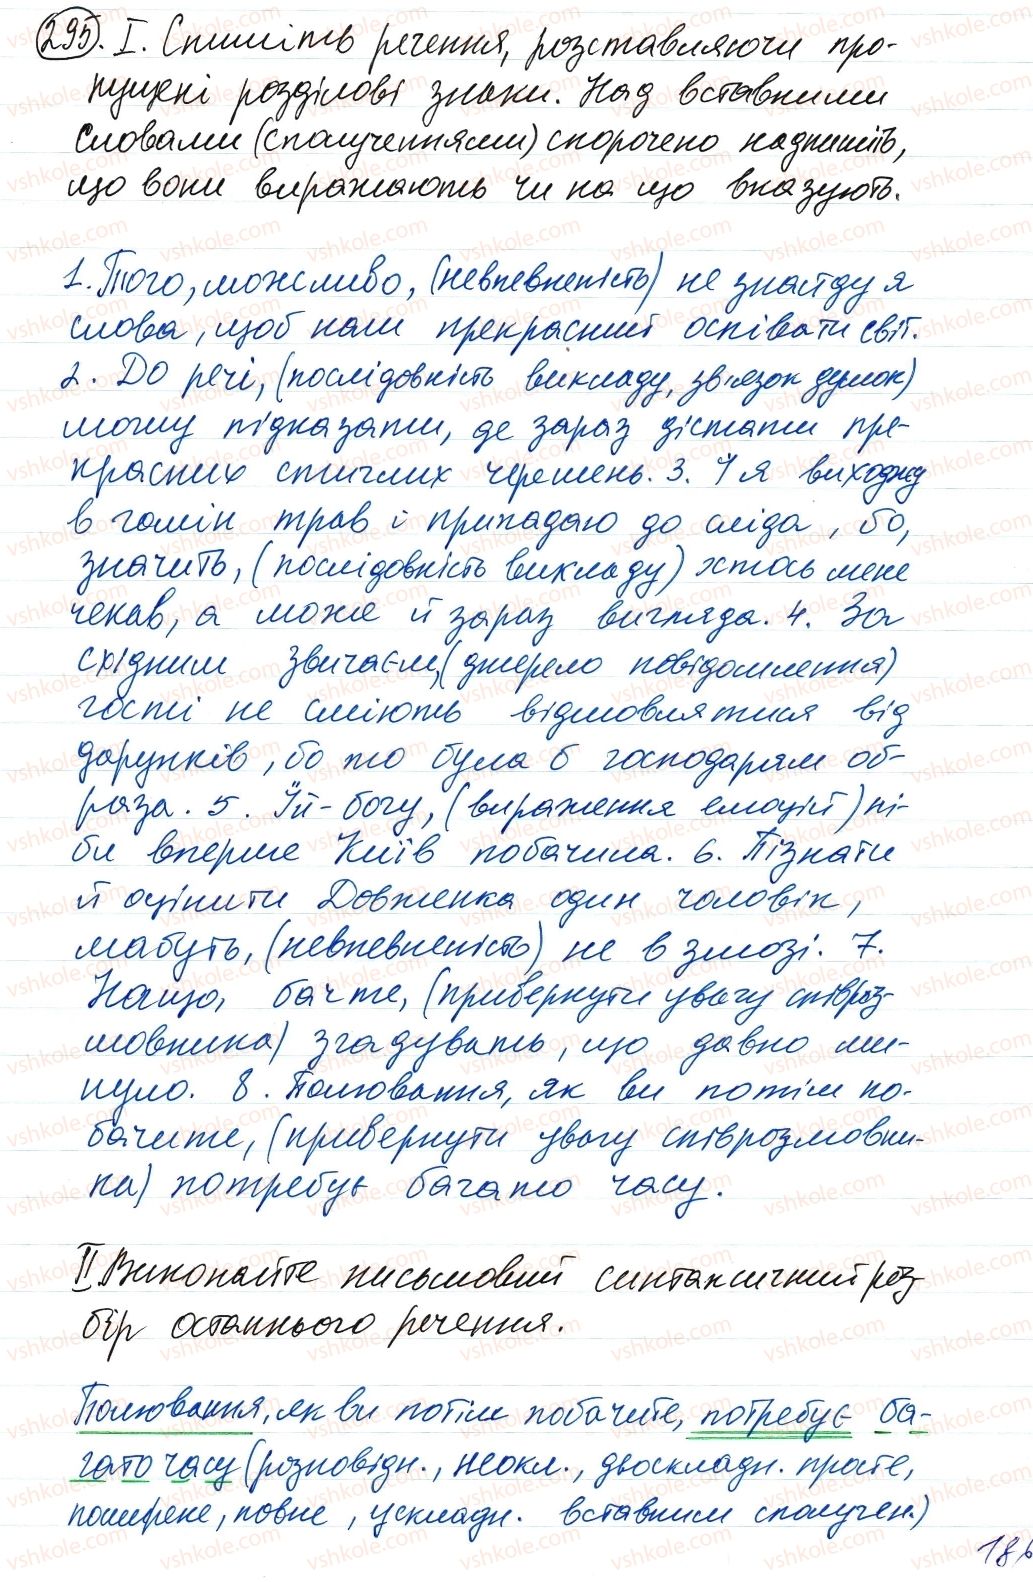 295. I. Спишіть речення, розставляючи про-
пущені розділові знаки. Над вставними
словами (сполученнями) скорочено надпишіть,
що вони виражають чи на що вказують.
1. Того, можливо, (невпевненість) не знайду я
слова, щоб наш прекрасний оспівати світ.
2. До речі, (послідовність викладу, зв'язок думок)
можу підказати, де зараз дістати пре-
красних стиглих черешень. 3. І я виходжу
в гомін трав і припадаю до сліда, бо,
значить, (послідовність викладу) хтось мене
чекав, а може й зараз вигляда. 4. За
східним звичаєм, (джерело повідомлення)
гості не сміють відмовлятися від
дарунків, бо то була б господарям об-
раза. 5. Їй-богу, (вираження емоцій) ні-
би вперше Київ побачила. 6. Пізнати
й оцінити Довженка один чоловік,
мабуть, (невпевненість) не в змозі. 7.
Нащо, бачте, (привернути увагу співроз-
мовника) згадувать, що давно ми-
нуло. 8. Полювання, як ви потім по-
бачите, (привернути увагу співрозмовни-
ка) потребує багато часу.
II Виконайте письмовий синтаксичний роз
бір останнього речення.
Полювання, як ви потім побачите, потребує ба-
гато часу (розповідн., неокл., двоскладн. просте,
поширене, повне, ускладн. вставним сполучен.)
186
vshkole.com